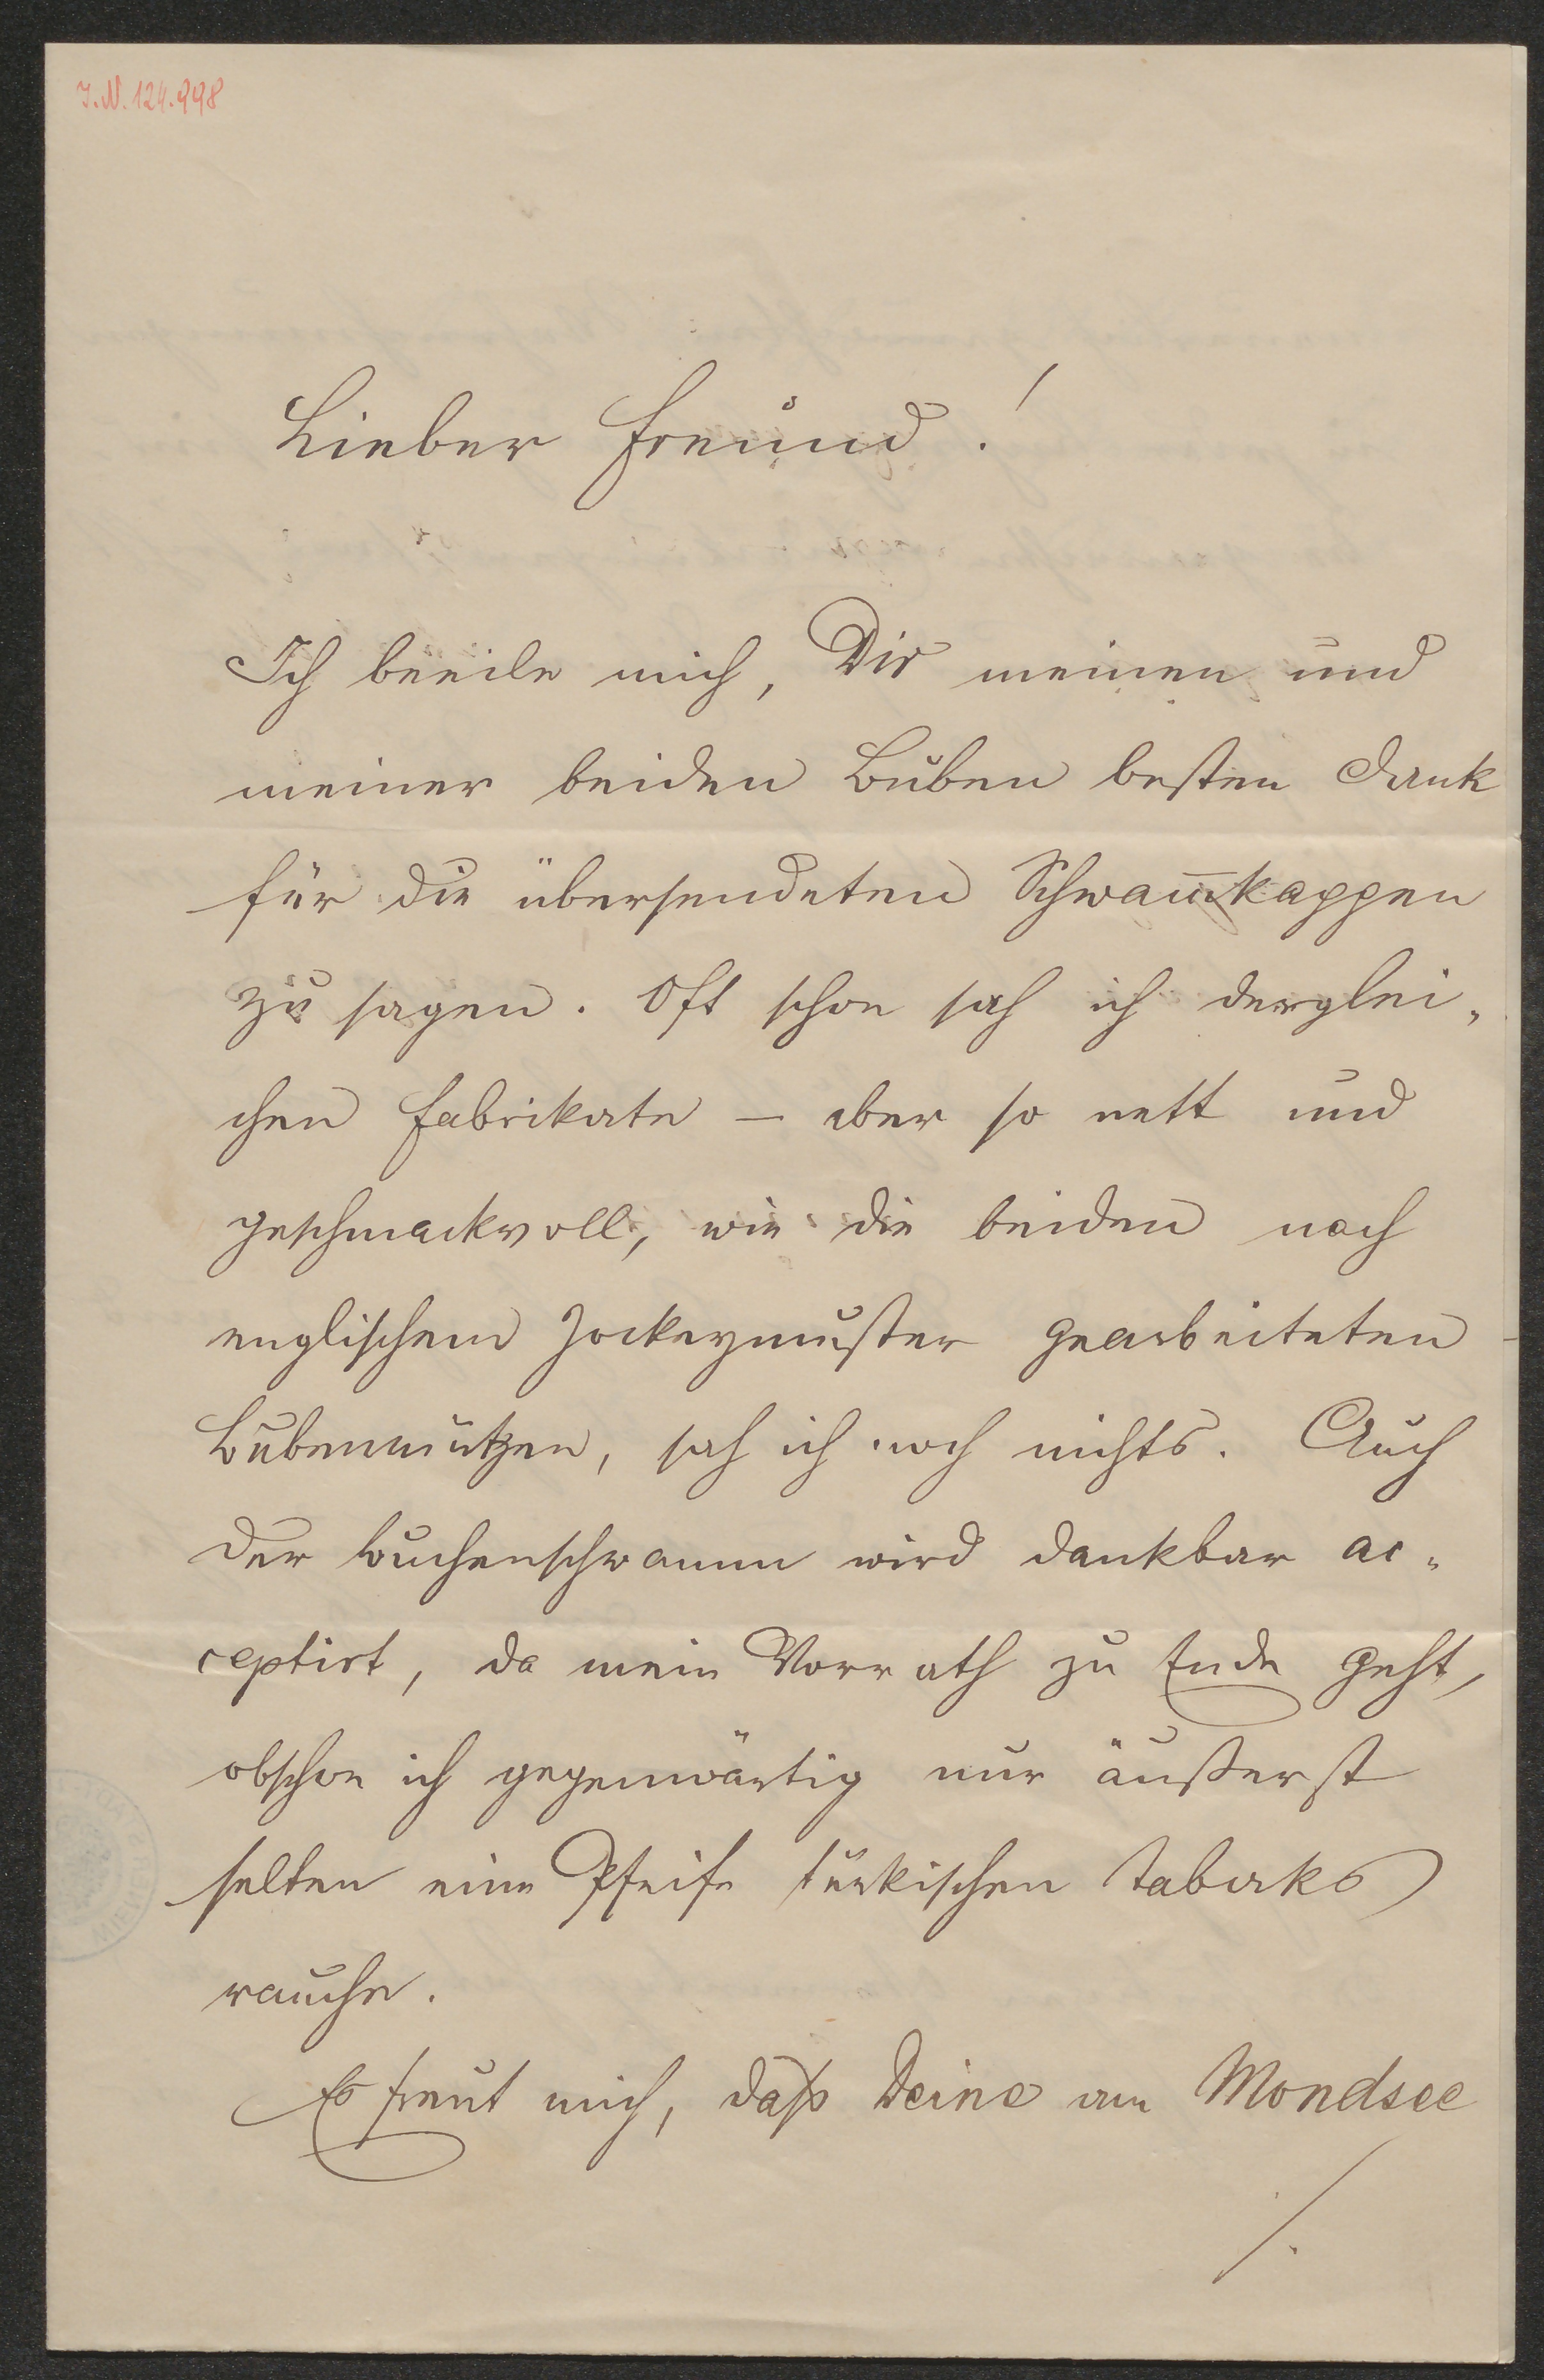 I.N. 124.998
Lieber Freund!
Ich beeile mich, Dir meinen und
meiner beiden Buben besten Dank
für die übersendeten Schwam̄kappen
zu sagen. Oft schon sah ich derglei„
chen Fabrikate – aber so nett und
geschmackvoll, wie die beiden nach
englischem Jockeymuster gearbeiteten
Bubenmützen, sah ich noch nichts. Auch
der Buchenschwamm wird dankbar ac„
ceptirt, da mein Vorrath zu Ende geht,
obschon ich gegenwärtig nur äußerst
selten eine Pfeife türkischen Tabaks
rauche.
Es freut mich, daß Deine am Mondsee
./.